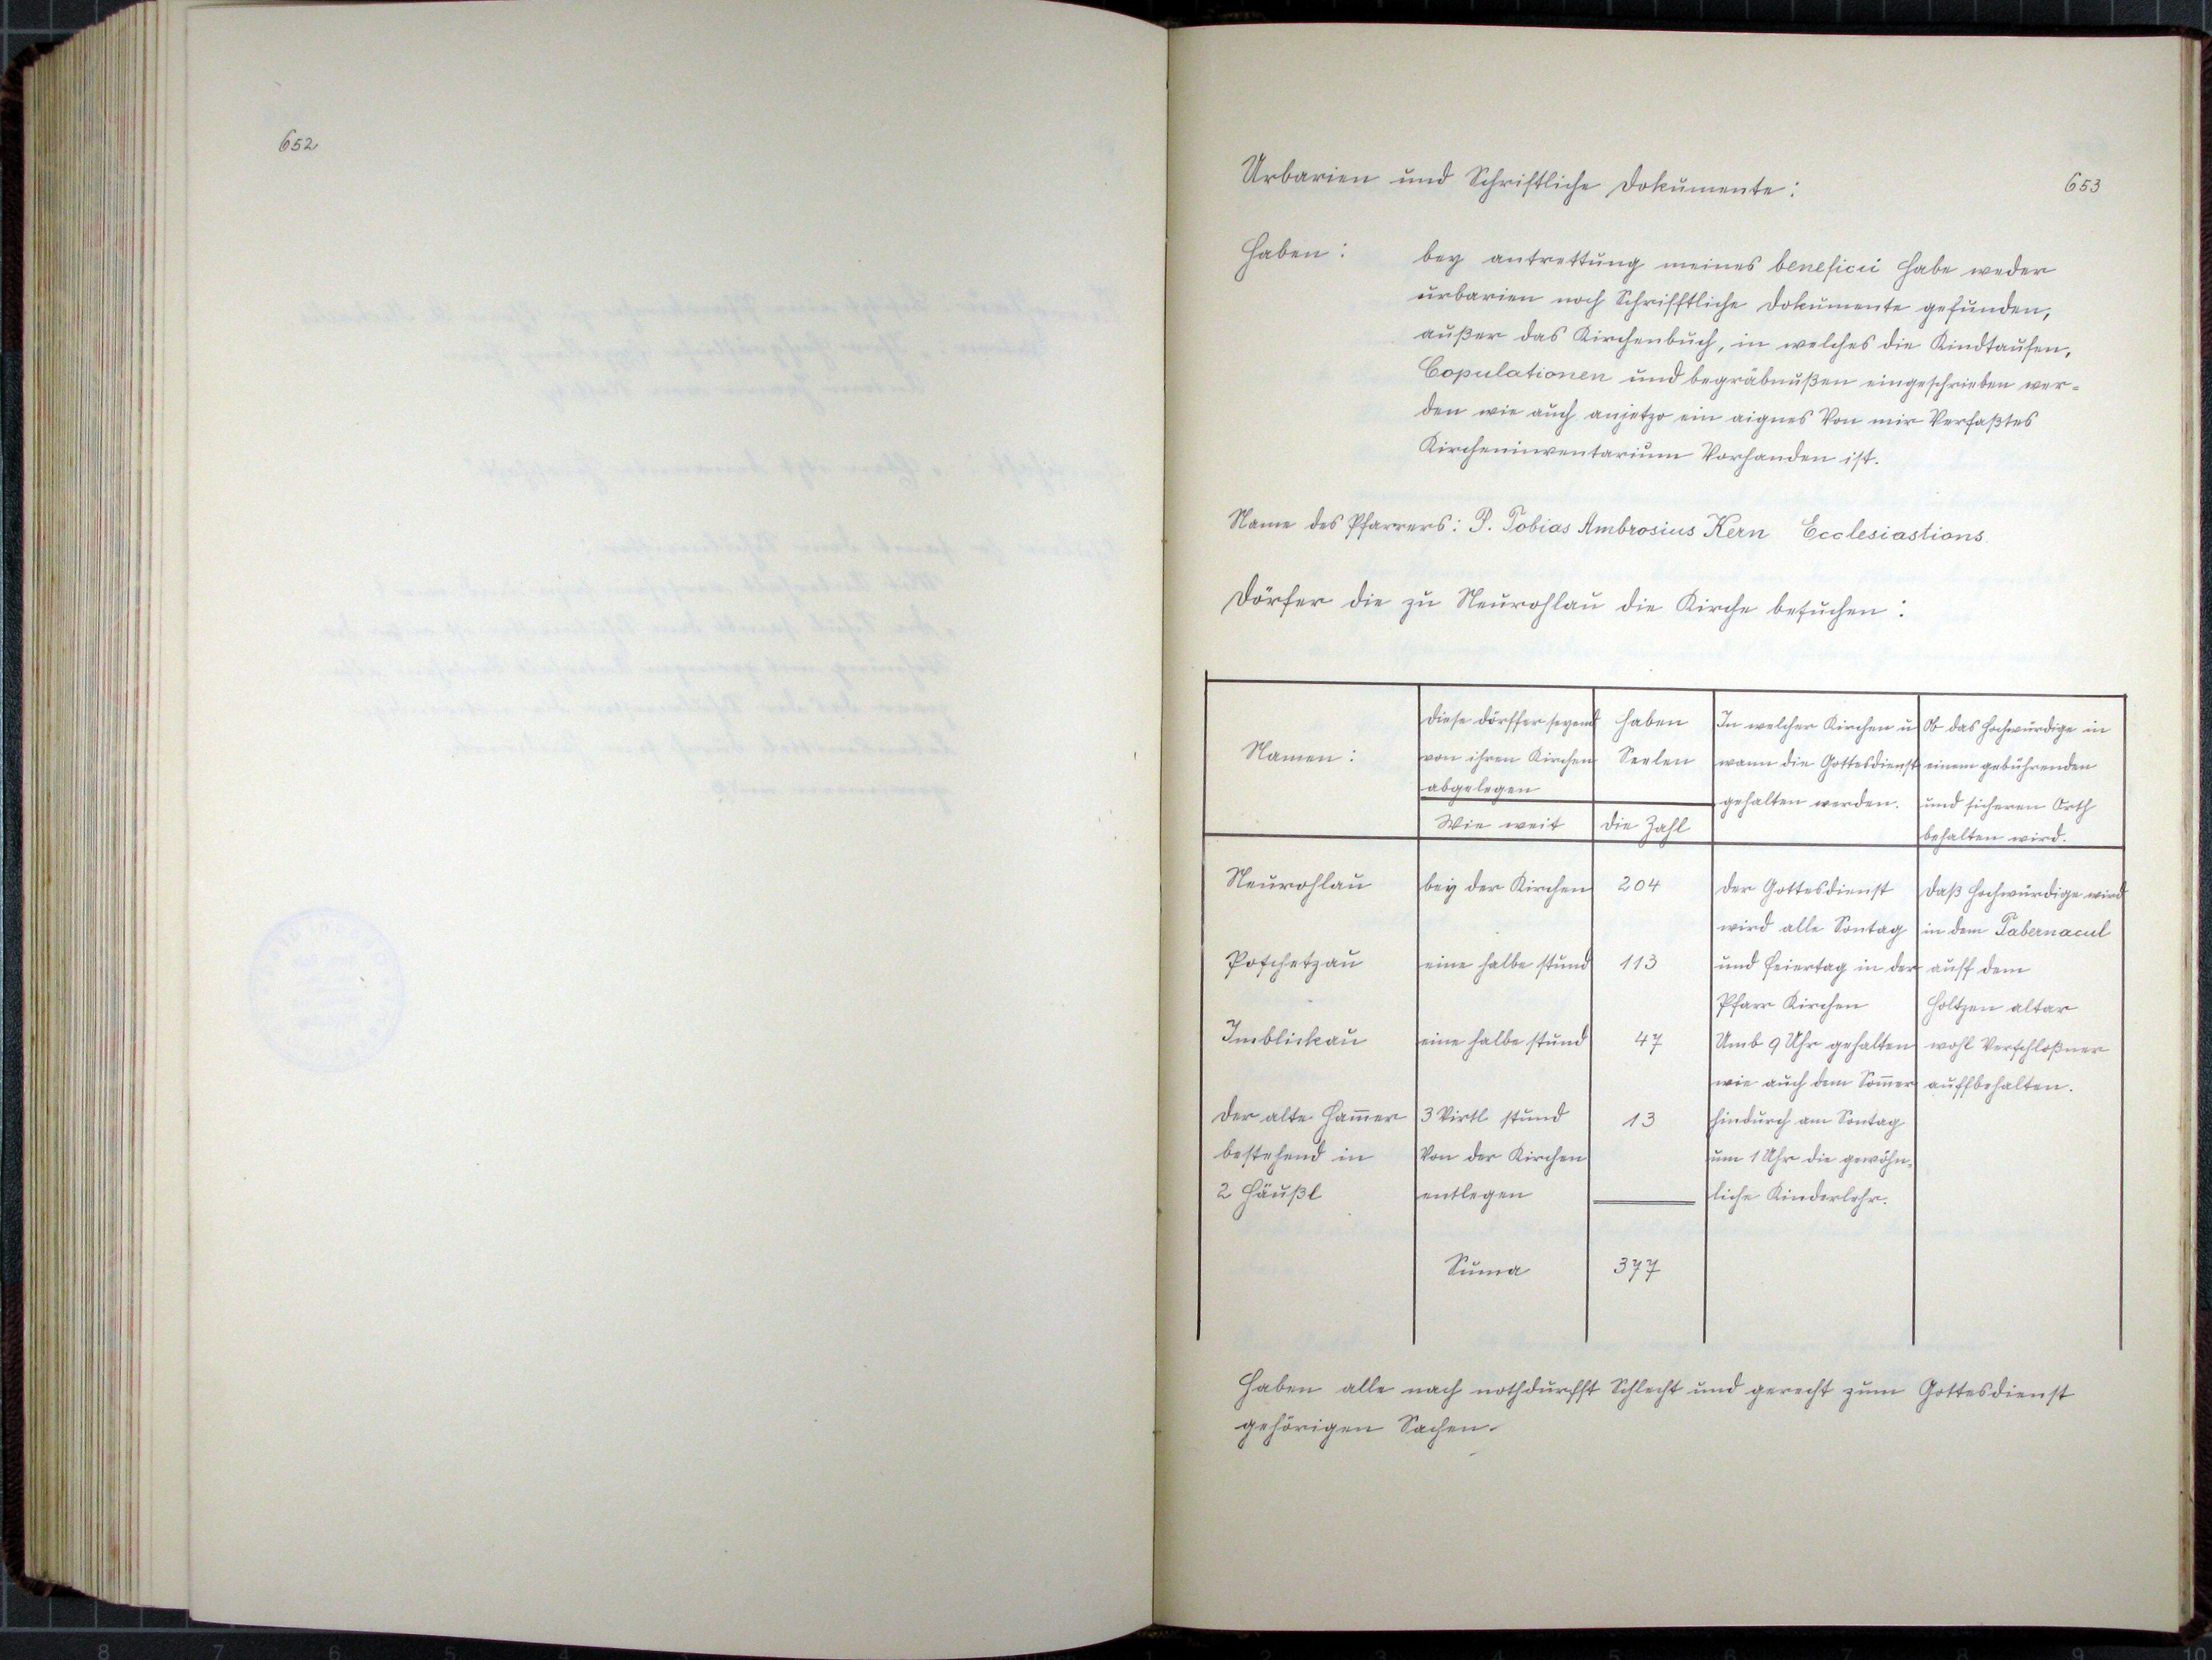 652
653
Urbarien und Schriftliche Dokumente:
Haben: bey antrettung meines beneficii habe weder
urbarien noch Schrifftliche Dokumente gefunden,
außer das Kirchenbuch, in welches die Kindtaufen,
Copulationen und begräbnußen eingeschrieben wer=
den wie auch anjetzo ein aignes Von mir Verfaßtes
Kircheninventarium Vorhanden ist.
Name des Pfarrers: P. Tobias Ambrosius Kern Ecclesiastions.
Dörfer die zu Neurohlau die Kirche besuchen:
Namen:
diese dörffer seyend
von ihren Kirchen
abgelegen
Wie weit
haben
Seelen
die Zahl
In welcher Kirchen u
wann die Gottesdienst
gehalten werden.
Ob das hochwürdige in
einem gebührenden
und sicheren Orth
behalten wird.
Neurohlau
bey der Kirchen
204
Poschetzau
eine halbe stund
113
Imblickau
eine halbe stund
47
der alte Ham̄er
bestehend in
2 Häußl
3 Virtl stund
Von der Kirchen
entlegen
13
Suma
377
der Gottesdienst
wird alle Sontag
und feiertag in der
Pfarr Kirchen
Umb 9 Uhr gehalten
wie auch dem Som̄er
hindurch am Sontag
um 1 Uhr die gewöhn=
liche Kinderlehr.
daß hochwürdige wird
in dem Tabernacul
auff dem
holtzen altar
wohl Verschloßner
auffbehalten.
Haben alle nach nothdurfft Schlecht und gerecht zum Gottesdienst
gehörigen Sachen.